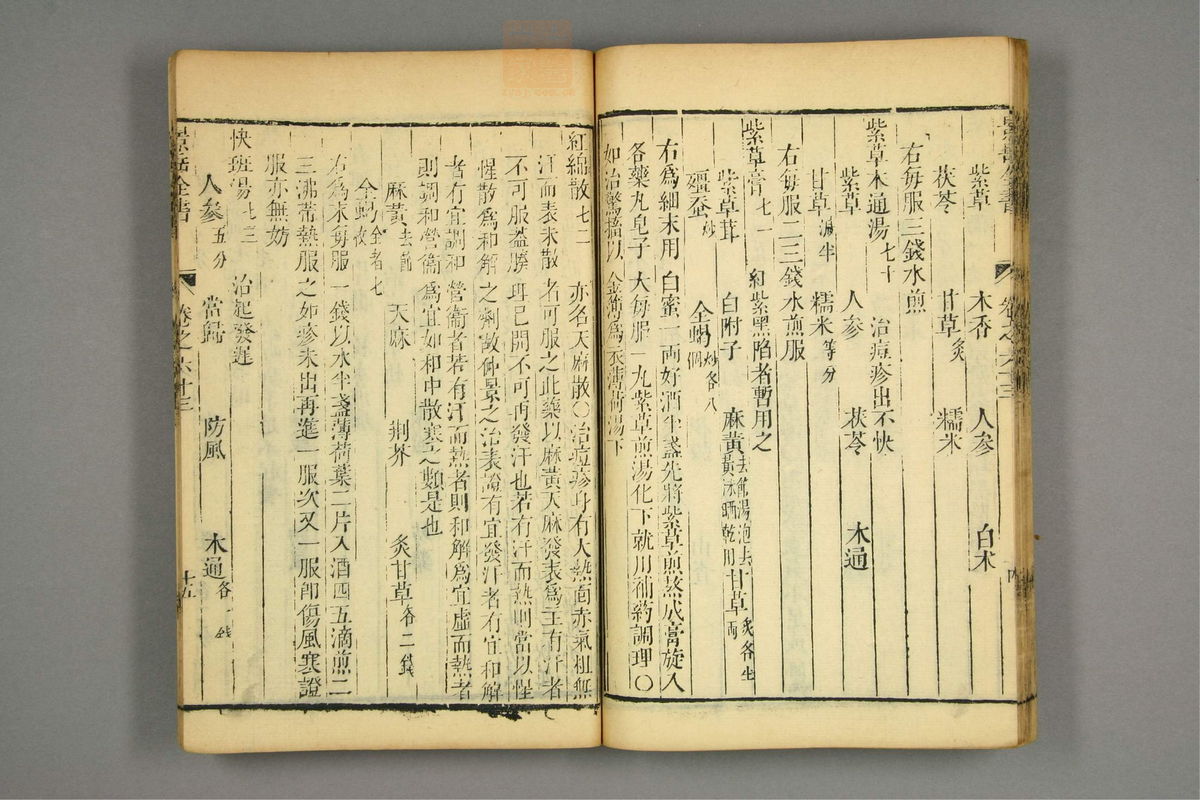 紫草 木香 人參 白朮
茯苓 甘草炙 糯米
右每服三錢水煎
紫草木通湯七十 治痘疹出不快
紫草 人參 茯苓 木通
甘草減半 糯米等分
右每服二三錢水煎服
紫草膏七一 紅紫黑陷者暫用之
紫草茸 白附子 麻黃去節湯泡去黃沫晒乾用 甘草炙各半兩
殭蚕炒 全蝎炒各八個
右爲細末用白蜜一兩好酒半盞先將紫草煎熬成膏旋入
各藥丸皂子大每服一丸紫草煎湯化下就用補葯調理○
如治驚搐以金箔爲衣薄荷湯下
紅綿散七二 亦名天麻散○治痘疹身有大熱面赤氣粗無
汗而表未散者可服之此藥以麻黃天麻發表爲主有汗者
不可服蓋腠理已開不可再發汗也若有汗而熱則當以惺
惺散爲和解之劑故仲景之治表證有宜發汗者有宜和解
者有宜調和營衞者若有汗而熱者則和解爲宜虛而熱者
則調和營衞爲宜如和中散寒之類是也
麻黃去節 天麻 荆芥 炙甘草各二錢
全蝎全者七枚
右爲末每服一錢以水半盞薄荷葉二片入酒四五滴煎二
三沸帶熱服之如疹未出再進一服次又一服卽傷風寒證
服亦無妨
快班湯七三 治起發遲
人參五分 當歸 防風 木通各一錢
景岳全書 卷之六十三 十五